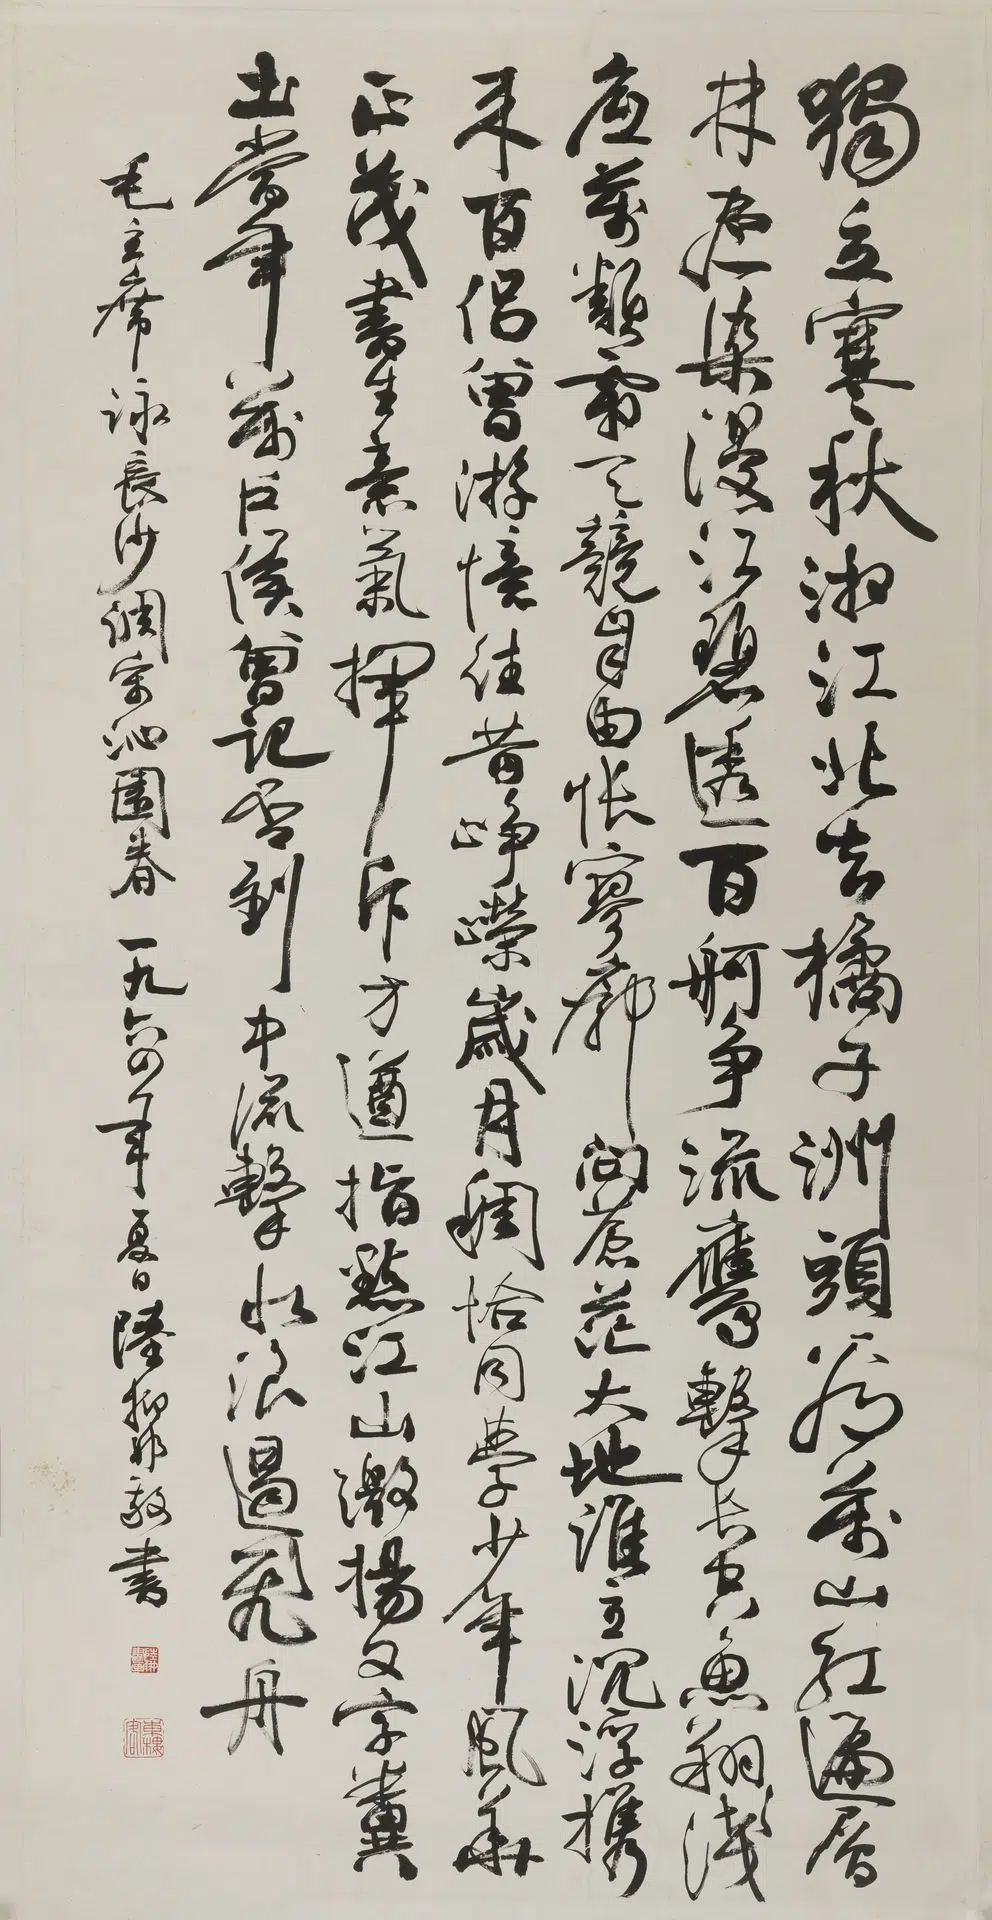 獨立寒秋湘江北去橘子洲頭看萬山紅遍層
林盡染漫江碧透百舸争流鷹擊長空魚翔淺
底萬類霜天競自由悵寥廓問蒼茫大地誰主沉浮携
来百侣曾游憶往昔峥嶸歲月稠恰同學少年風華
正茂書生意氣揮斥方遒指點江山激揚文字糞
土當年萬户侯曾記否到中流擊水浪遏飛舟
毛主席詠長沙調寄沁園春 一九六四年夏日陸抑非敬書